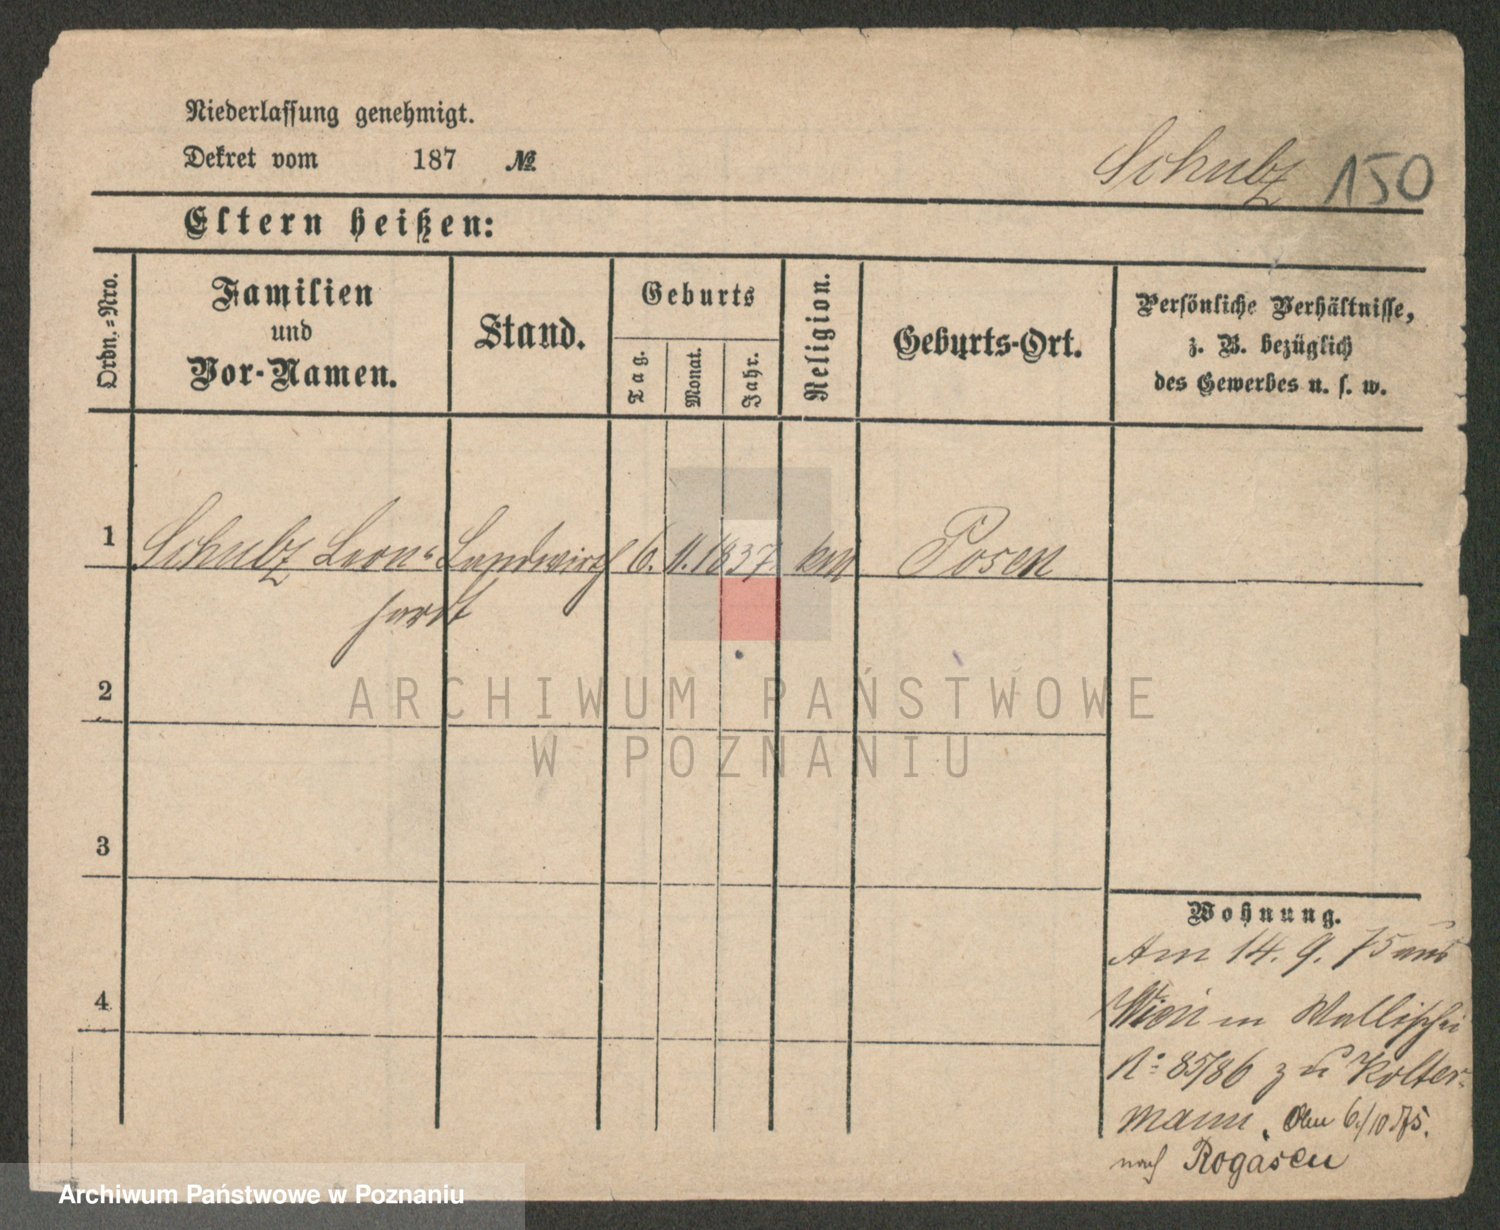 Niederlassung genehmigt.
Dekret vom 187 №
Schulz 150
Eltern heißen:
Ordn.-Nro.
Familien
und
Vor-Namen.
Stand.
Geburts
Tag.
Monat.
Jahr.
Religion.
Geburts-Ort.
Persönliche Verhältnisse,
z. B. bezüglich
des Gewerbes u. s. w.
1 Schulz Leon- Landwirth 6. 11. 1837 Posen
hardt
2
3
4
Wohnung.
Am 14. 9. 75 aus
Wien in Wallischei
No 85/86 zu Kolter-
mann. Am 6/10 75.
nach Rogasen
ARCHIWUM PAŃSTWOWE
W POZNANIU
Archiwum Państwowe w Poznaniu